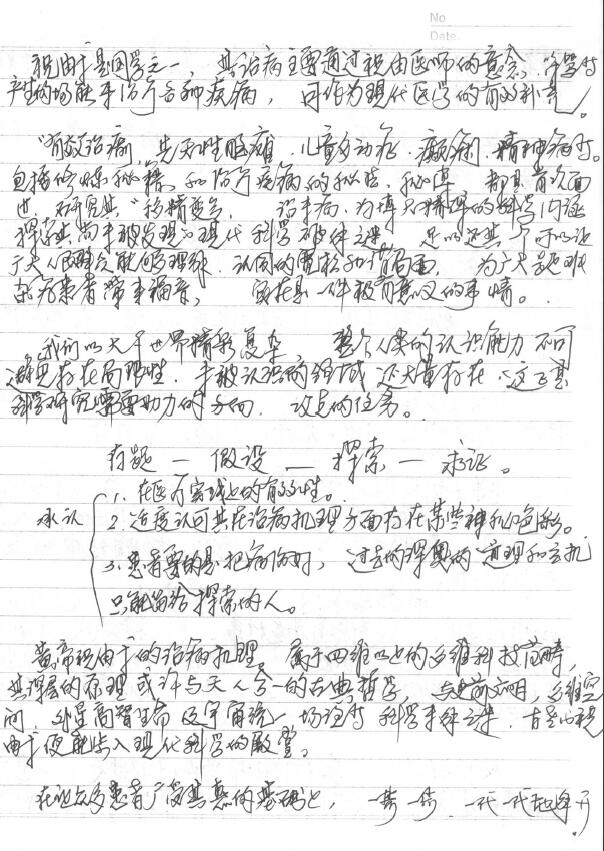 No
Date.
祝由于是国学之一，其治病主要通过祝由医师的意念、
产生的场能来治疗各种疾病，可作为现代医学的有效补充。
"有效治病，先天性脑瘫、儿童多动症、癫痫、精神病等。
包括修炼秘籍和治疗疾病的秘法、秘, 都具首次面
世，研究其"移精变气，治未病，为博大精深的科学内涵
探索尚未被发现的现代科学破译之谜，足以还其
广大人民群众能够理解、认同的宽松和谐局面，为广大疑难
杂病患者带来福音，实在是一件极有意义的事情。
我们的大千世界精彩复杂，整个人类的认识能力不可
避免存在局限性，未被认识的领域还大量存在，这正是
科学研究需要助力的方向、攻克的任务。
存疑—假设—探索—求证。
承认
1.在医疗实践上的有效性。
2.适度认可其在治病机理方面存在某些神秘色彩。
3.患者要的是把病治好，过去的深奥的道理和玄机
只能留给探索的人。
黄帝祝由于的治病机理，属于四维以上的多维科技范畴，
其深层的原理或许与天人合一的古典哲学、史前文明、多维空
间、外星高智生命及宇宙统一场论等科学未解之谜，古老的祝
由于便能步入现代科学的殿堂。
在让众多患者广为其惠的基础上，一步一步、一代一代